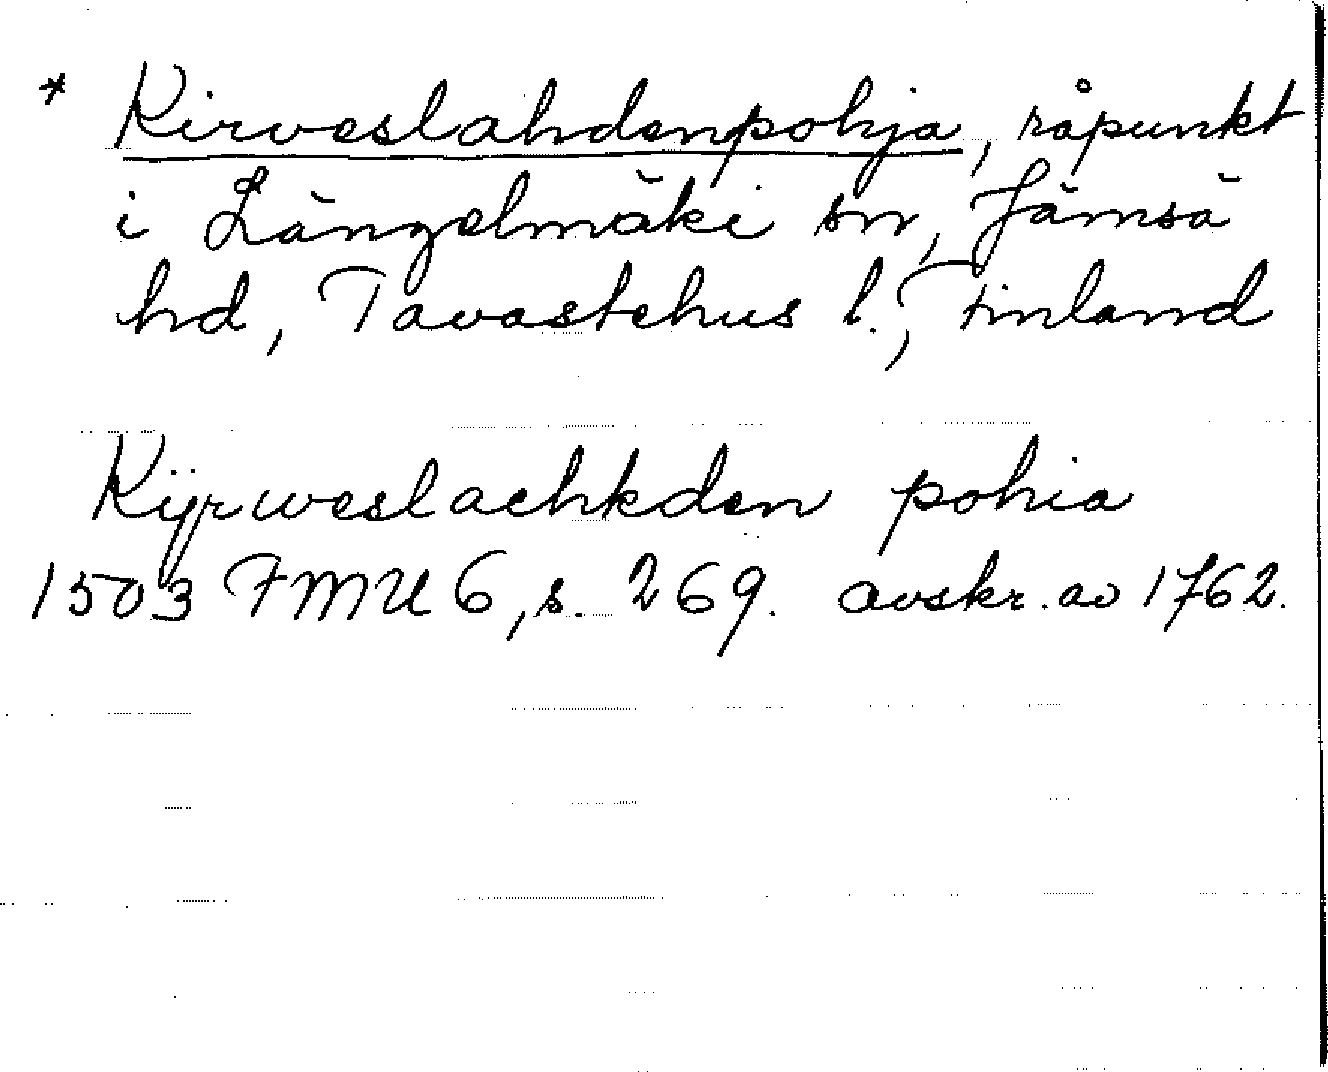 * Kirveslahdenpohja, råpunkt
i Längelmäki sn, Jämsä
hd, Tavastehus l., Finland
Kÿrweslaehkden pohia
1503 FMU 6, s. 269. avskr. av 1762.